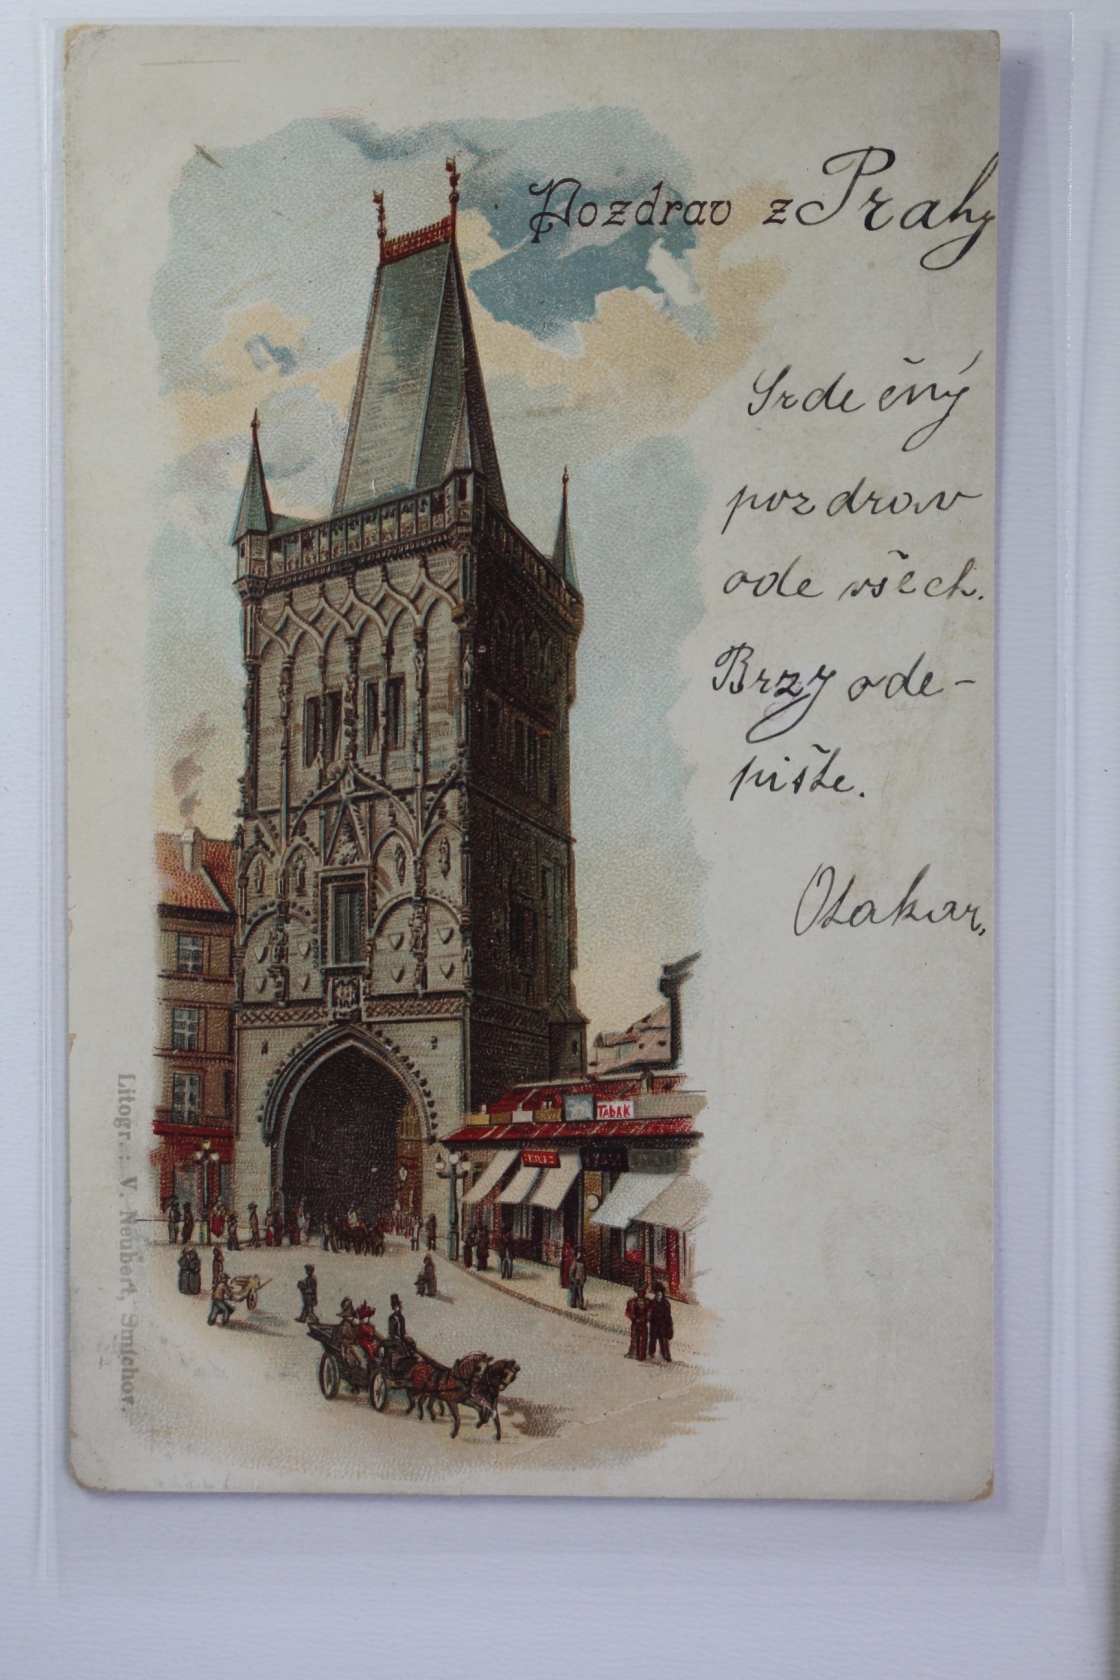 Pozdrav z Prahy
Srdečný
pozdrav
ode všech.
Brzy ode-
pište.
Otakar,
TABAK
Litogr.: V. Neubert, Smíchov.